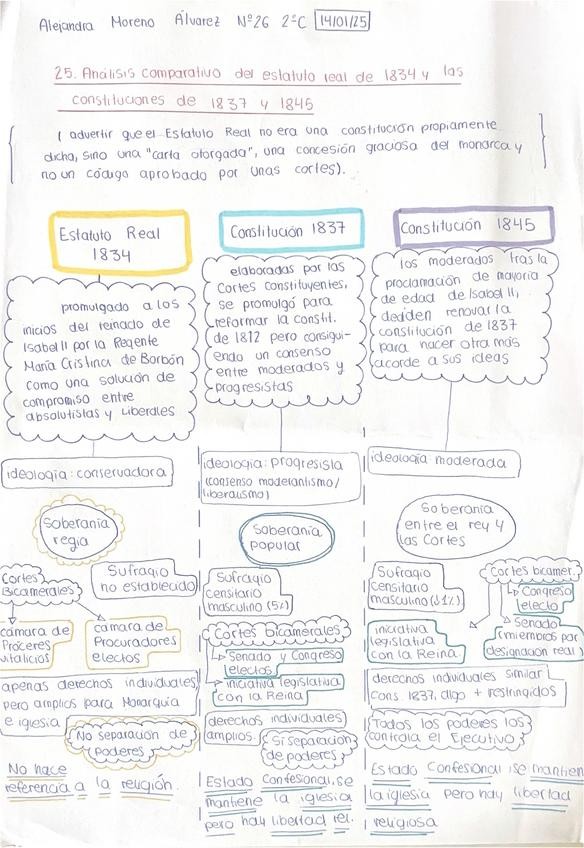 Alejandra Moreno Álvarez Nº26 2ºC 14/01/25
25. Análisis comparativo del estatuto real de 1834 y las
constituciones de 1837 y 1845
( advertir que el Estatuto Real no era una constitución propiamente
dicha, sino una "carta otorgada", una concesión graciosa del monarca y
no un código aprobado por unas cortes).
Estatuto Real
1834
promulgado a los
inicios del reinado de
Isabel II por la Regente
María Cristina de Borbón
como una solución de
compromiso entre
absolutistas y liberales
ideología: conservadora
Soberanía
regia
Sufragio
no establecido
Cortes
Bicamerales
cámara de
Próceres
vitalicios
cámara de
Procuradores
electos
apenas derechos individuales
pero amplios para Monarquía
e iglesia
No separación de
poderes
No hace
referencia a la religión.
Constitución 1837
elaboradas por las
Cortes Constituyentes,
se promulgó para
reformar la constit.
de 1812 pero consigui-
endo un consenso
entre moderados y
progresistas
ideología: progresista
(consenso moderantismo/
liberalismo)
Soberanía
popular
Sufragio
censitario
masculino (5%)
Cortes Bicamerales
Senado y Congreso
electos
iniciativa legislativa
con la Reina
derechos individuales
amplios.
Sí separación
de poderes
Estado Confesional, se
mantiene la iglesia
pero hay libertad rel.
Constitución 1845
los moderados tras la
proclamación de mayoría
de edad de Isabel II,
deciden renovar la
constitución de 1837
para hacer otra más
acorde a sus ideas
ideología moderada
Soberanía
entre el rey y
las Cortes
Sufragio
censitario
masculino (1%)
Cortes bicamer.
Congreso
electo
Senado
(miembros por
designación real)
iniciativa
legislativa
con la Reina
derechos individuales similar
Cons. 1837, algo + restringidos
Todos los poderes los
controla el Ejecutivo
Estado Confesional, se mantien
la iglesia pero hay libertad
religiosa